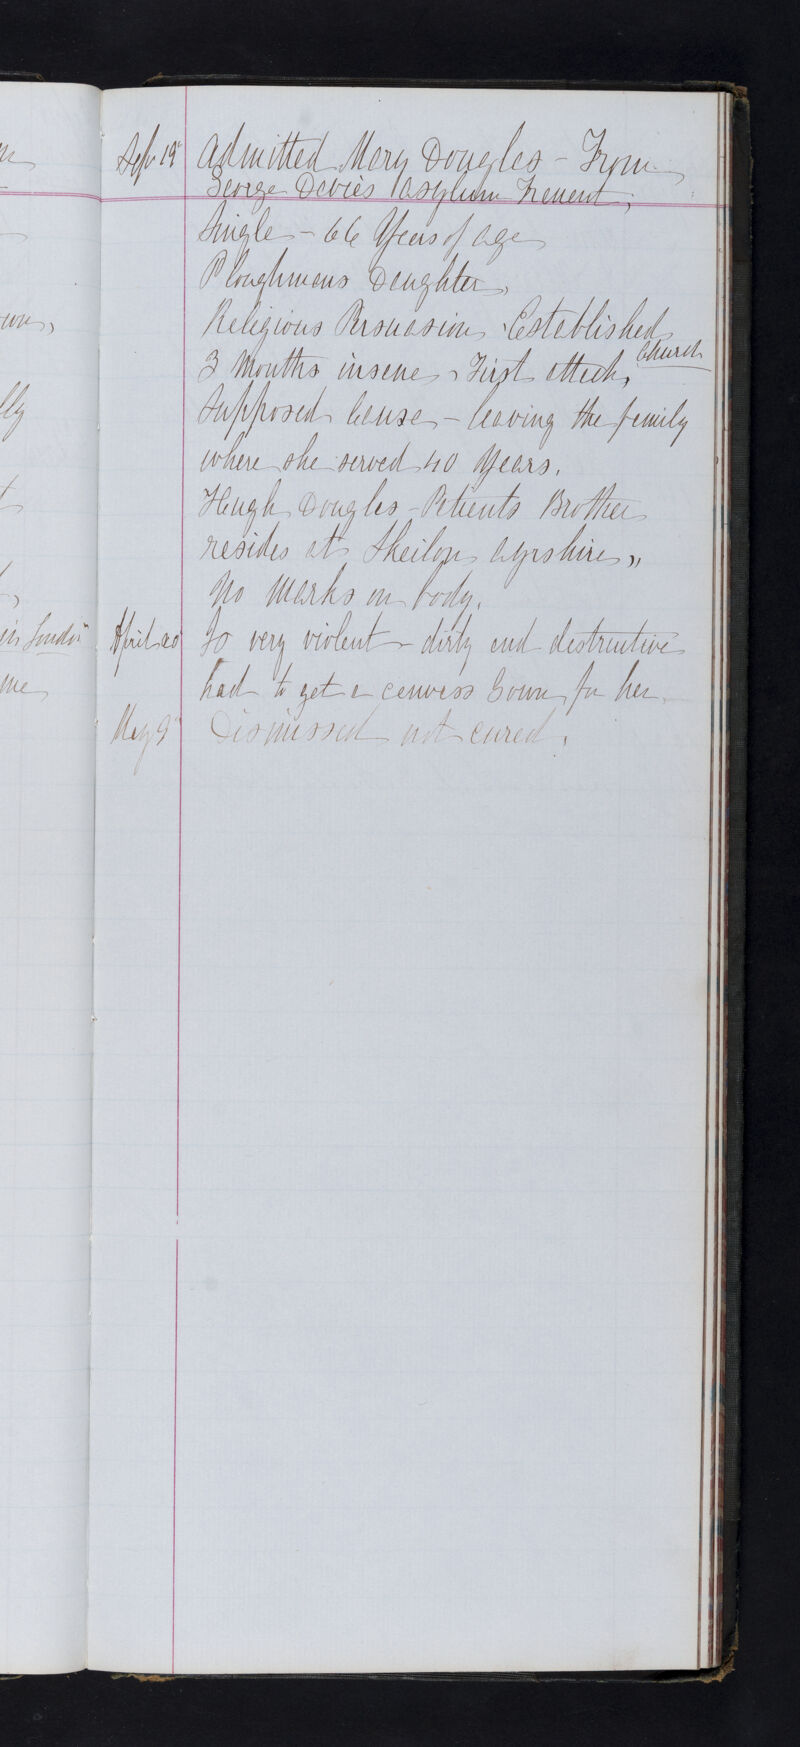 Sept 19th Admitted Mary Douglas - From
George Davies Asylum Tranent,
Single - 66 Years of age
Ploughmans Daughter,
Religious Persuasion Established
Church
3 Months insane, First attack,
Supposed Cause - leaving the family
where she served 40 Years.
Hugh Douglas - Patients Brother
resides at Ayrshire,,
No Marks on body.
April 20 Is very violent - dirty and destructive
had to get a canvass Gown for her.
May 9th Dismissed not cured.